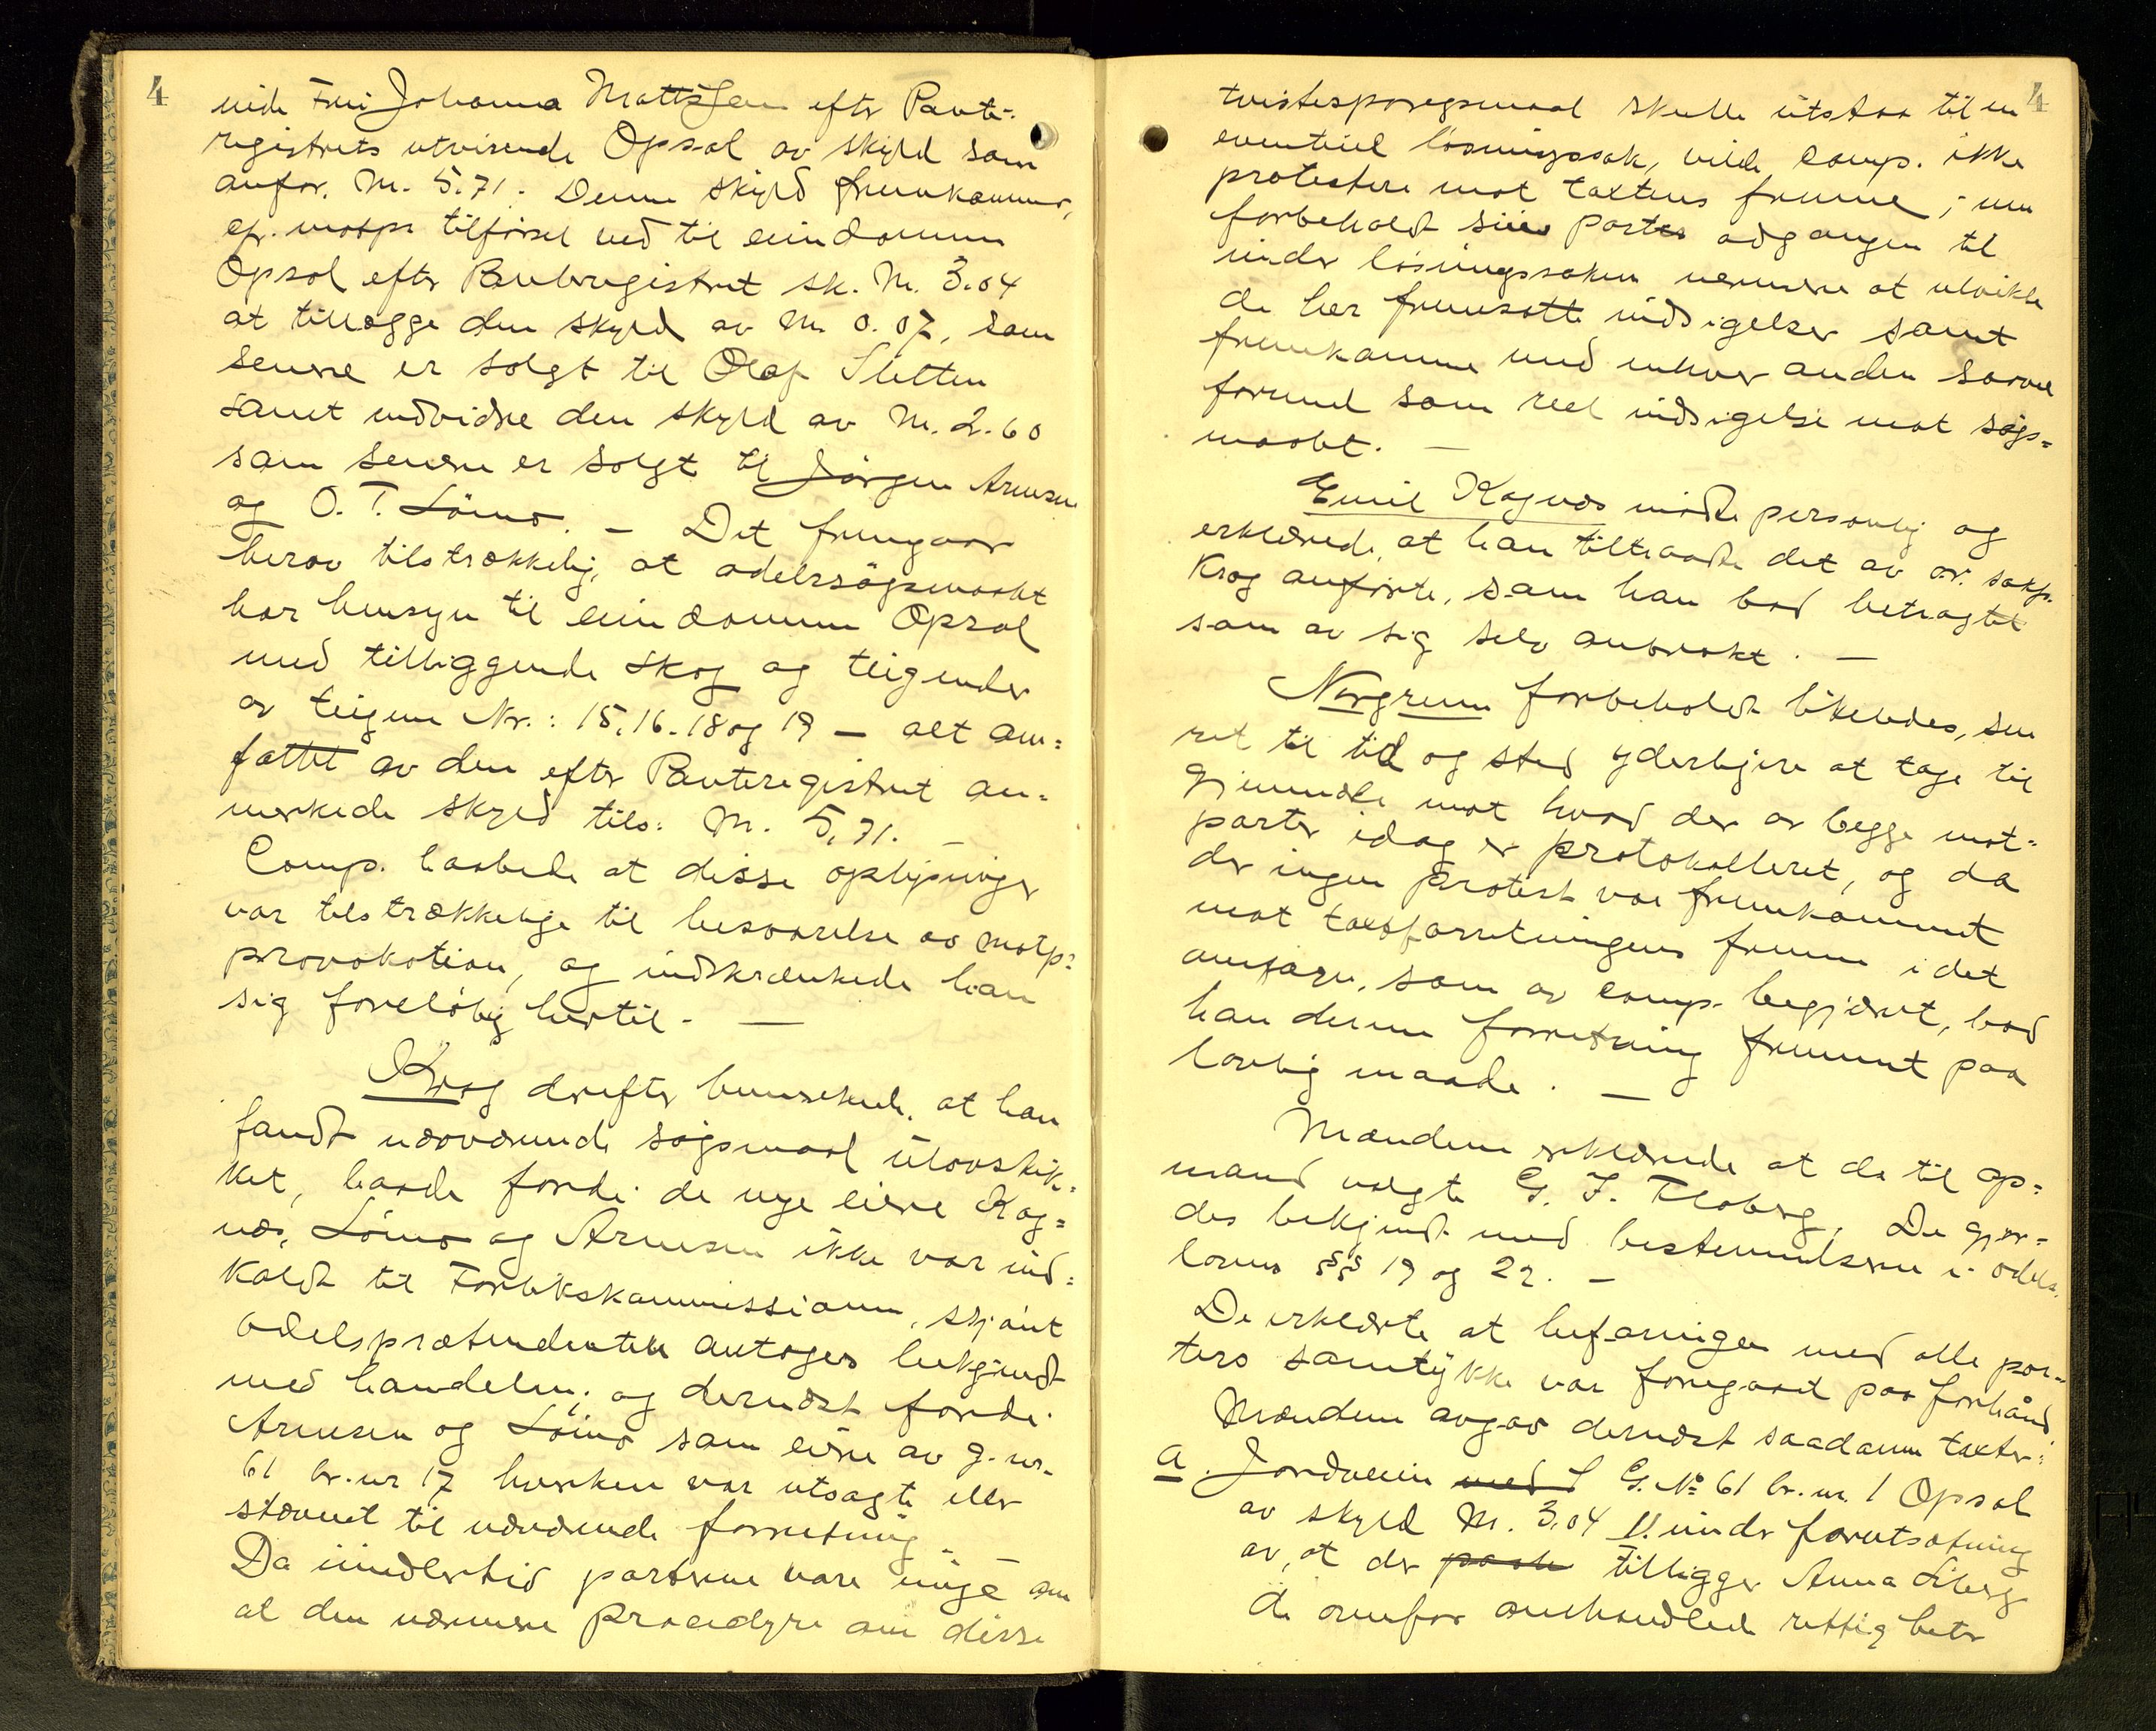 4
nide Fru Johanna Mattsen efter Pante-
registrets utvisende Opsal av skyld som
anfør. M. 5.71. Denne skyld fremkommer,
efr. motps tilførsel ved til eiendommen
Opsal efter Panteregistret sk. M. 3.04
at tillægge den skyld av M. 0.07, som
senere er solgt til Olaf Sletten
samt endvidere den skyld av M. 2.60
som senere er solgt til Jørgen Arnesen
og O. T. Lömo. — Det fremgaar
herav tilstrækkelig, at odelssøgsmaalet
har hensyn til eiendommen Opsal
med tilliggende skog og teig under
av teigene Nr.: 15, 16. 18 og 19 — alt om=
fattet av den efter Panteregistret an=
merkede skyld tils: M. 5,71. —
Comp. haabede at disse oplysninger
var tilstrækkelige til besvarelse av motp:
provokation, og indskrænkede han
sig foreløbig hertil. —
Krog derefter bemerkede, at han
fandt nærværende søgsmaal ulovskik=
ket, baade fordi de nye eiere Rog=
næs, Lömo og Arnesen ikke var ind=
kaldt til Forlikskommissionen, skjønt
odelsprætendenten antages bekjendt
med handelen; og dernæst fordi
Arnesen og Lömo som eiere av g.nr.
61 br.nr 17 hverken var utsagte eller
stævnet til nærværende forretning.
Da imidlertid parterne vare enige om
at den nærmere procedyre om disse
4
tvistespørgsmaal skulle utstaa til en
eventuel løsningssak, vilde comp. ikke
protestere mot taxtens fremme; men
forbeholdt sine parter adgangen til
under løsningssaken nærmere at utvikle
de her fremsatte indsigelser samt
fremkomme med enhver anden saavel
formel som reel indsigelse mot søgs=
maalet. —
Emil Rognæs mødte personlig og
erklærede, at han tiltraadte det av o.r. sakf.
Krog anførte, som han bad betragtet
som av sig selv anbrakt. —
Norgrenn forbeholdt likeledes, sin
ret til tid og sted yderligere at tage til
gjenmæle mot hvad der av begge mot=
parter idag er protokolleret, og da
der ingen protest var fremkommet
mot taxtforretningens fremme i det
omfang, som av comp. begjæret, bad
han denne forretning fremmet paa
lovlig maade. —
Mændene erklærede at de til op=
mand valgte G. F. Floberg. De gjør=
des bekjendt med bestemmelserne i odels=
lovens §§ 19 og 22. —
De erklærte at befaringen med alle par=
ters samtykke var foregaaet paa forhånd
Mændene avgav dernæst saadanne taxter:
a. Jordveien med S G. No 61 br.nr. 1 Opsal
av skyld M. 3,04 under forutsætning
av, at der paale tilligger Anna Liberg
de ovenfor omhandlede rettigheter